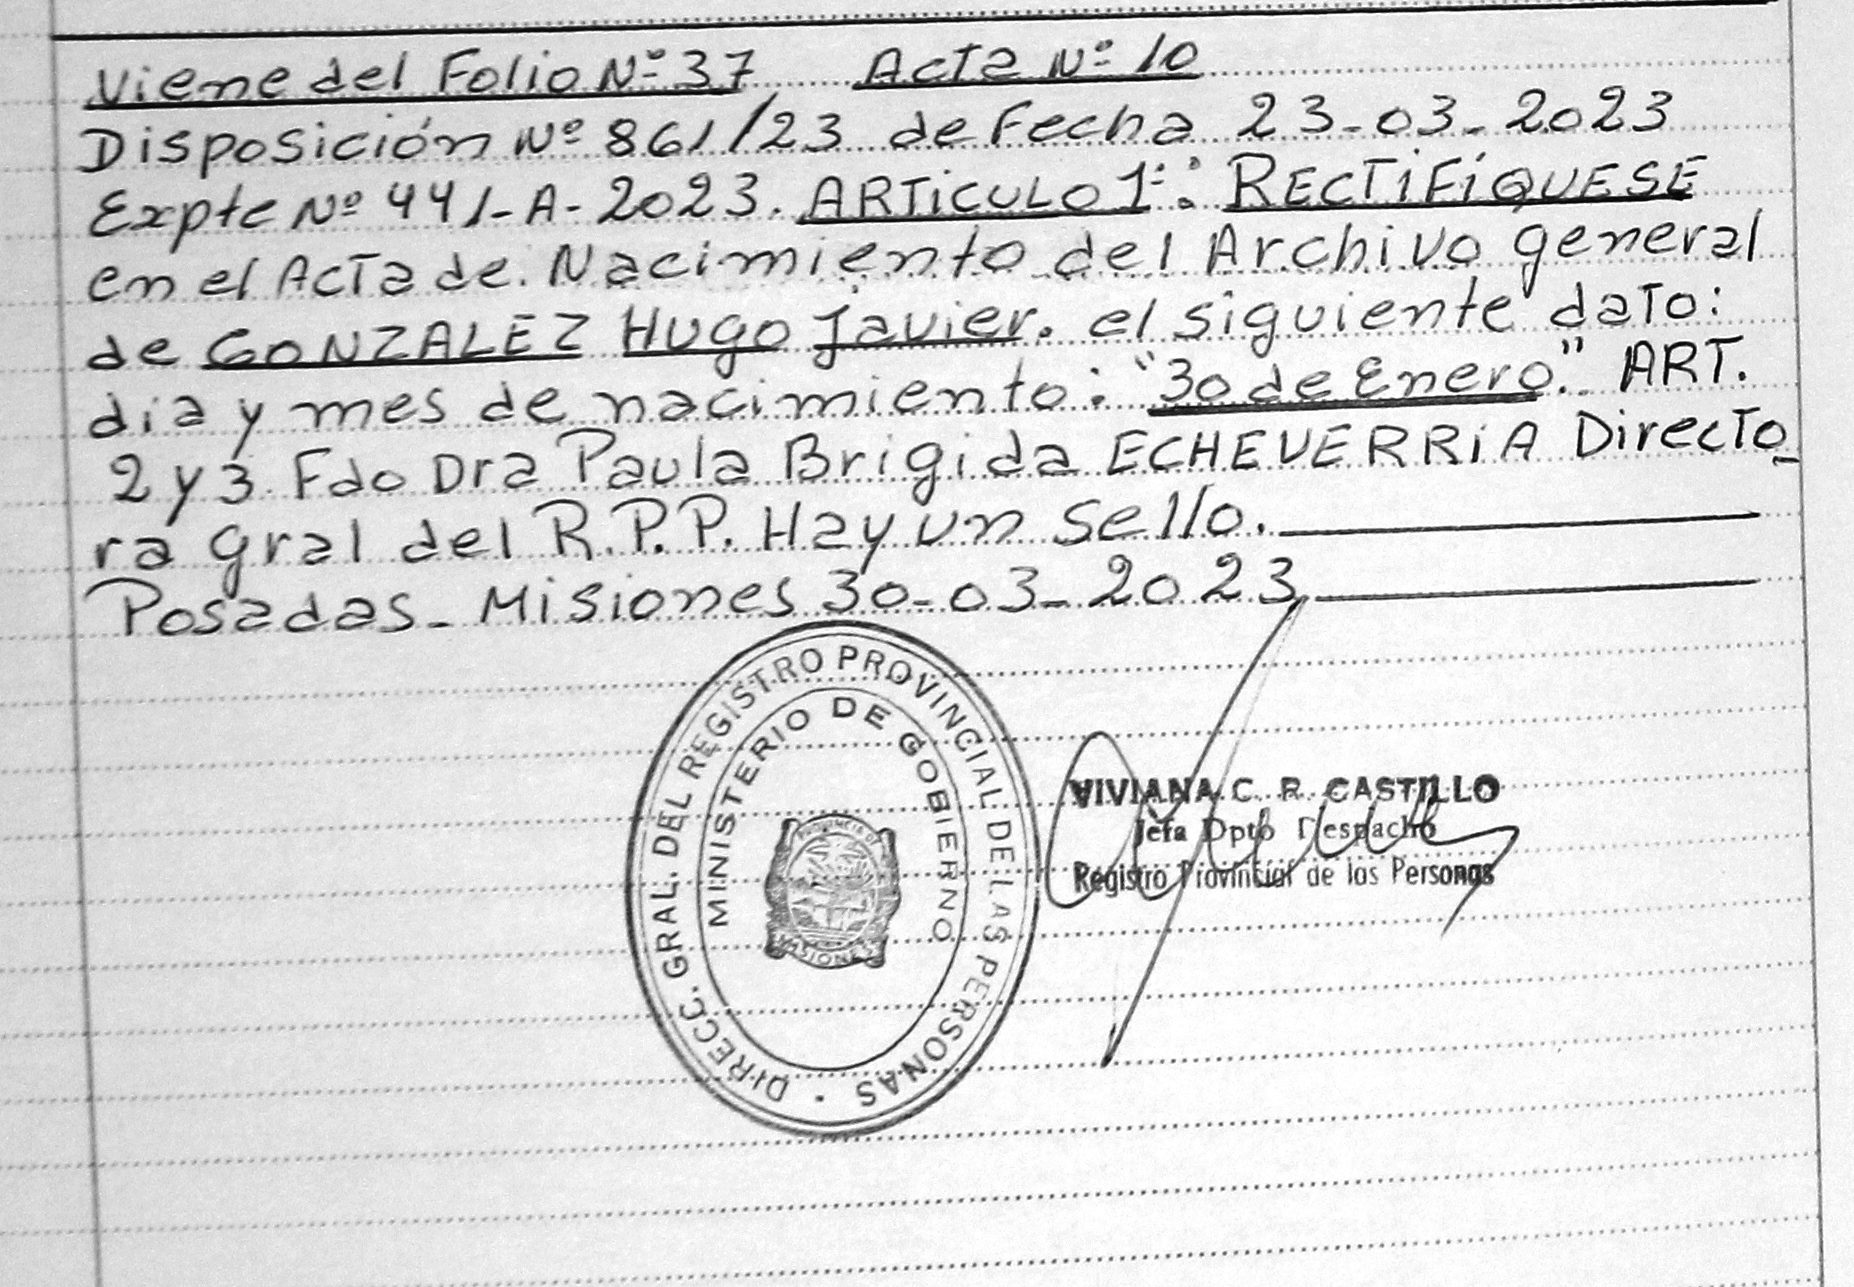 Viene del Folio Nº 37 Acta Nº 10
Disposición Nº 861/23 de Fecha 23-03-2023
Expte Nº 441-A-2023. ARTICULO 1º: RECTIFÍQUESE
en el Acta de Nacimiento del Archivo general
de GONZALEZ Hugo Javier. el siguiente dato:
dia y mes de nacimiento: "30 de Enero." ART.
2 y 3 Fdo Dra Paula Brigida ECHEVERRiA Directo_
ra Gral del R.P.P. Hay un Sello.
Posadas_ Misiones 30-03-2023
DIRECC. GRAL. DEL REGISTRO PROVINCIAL DE LAS PERSONAS
MINISTERIO DE GOBIERNO
PROVINCIA DE
MISIONES
VIVIANA C. R. CASTILLO
Jefa Dpto Despacho
Registro Provincial de las Personas